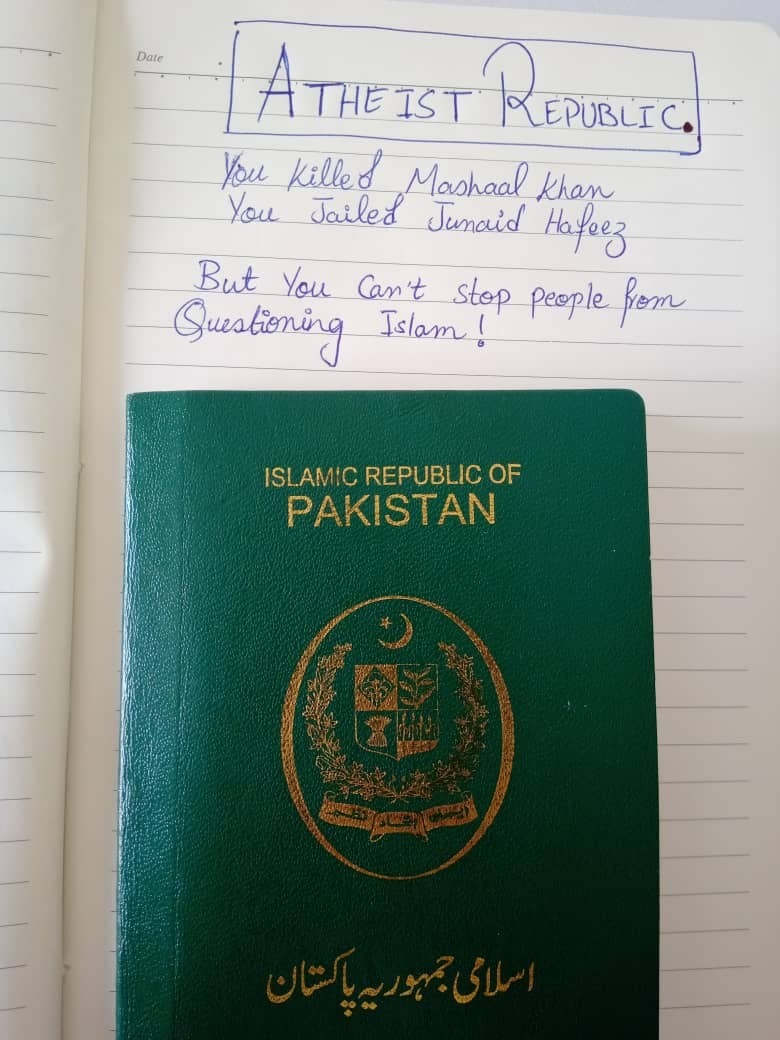 Date
ATHEIST REPUBLIC.
You Killed Mashaal Khan
You Jailed Junaid Hafeez
But You Can't stop people from
Questioning Islam!
ISLAMIC REPUBLIC OF
PAKISTAN
اسلامی جمہوریہ پاکستان